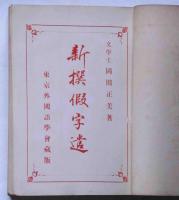 文學士 國關正美著
新撰假字遣
東京外國語學會藏版